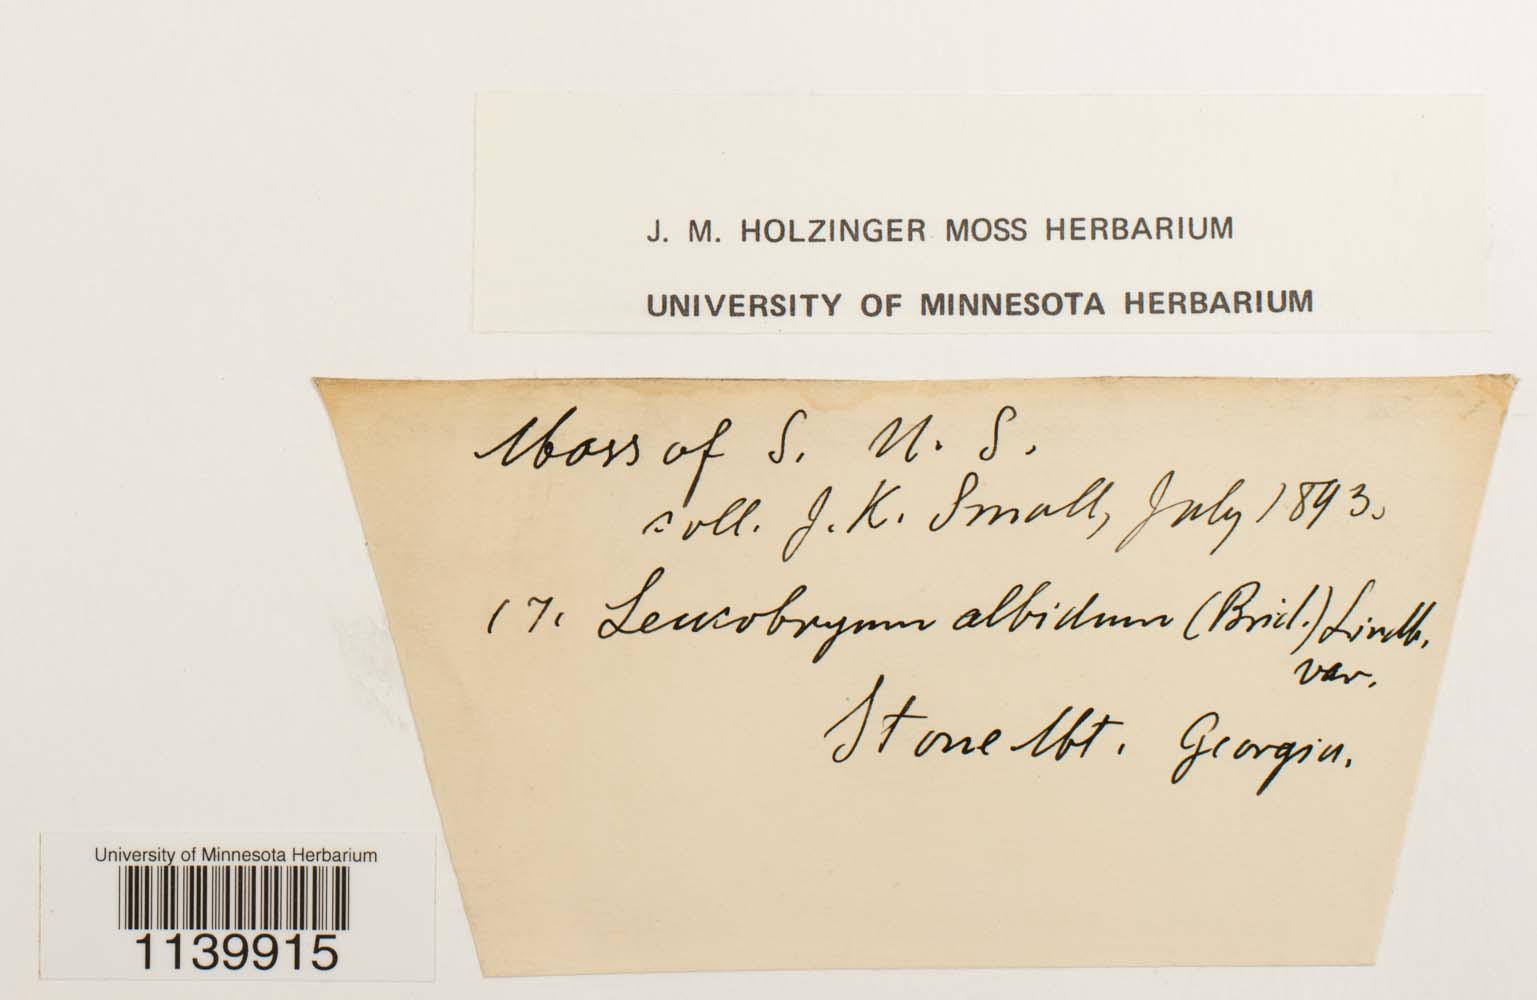 J. M. HOLZINGER MOSS HERBARIUM
UNIVERSITY OF MINNESOTA HERBARIUM
Moss of S. U. S.
coll. J. K. Small, July 1893.
17. Leucobryum albidum (Brid.) Lindb.
var.
Stone Mt. Georgia.
University of Minnesota Herbarium
1139915